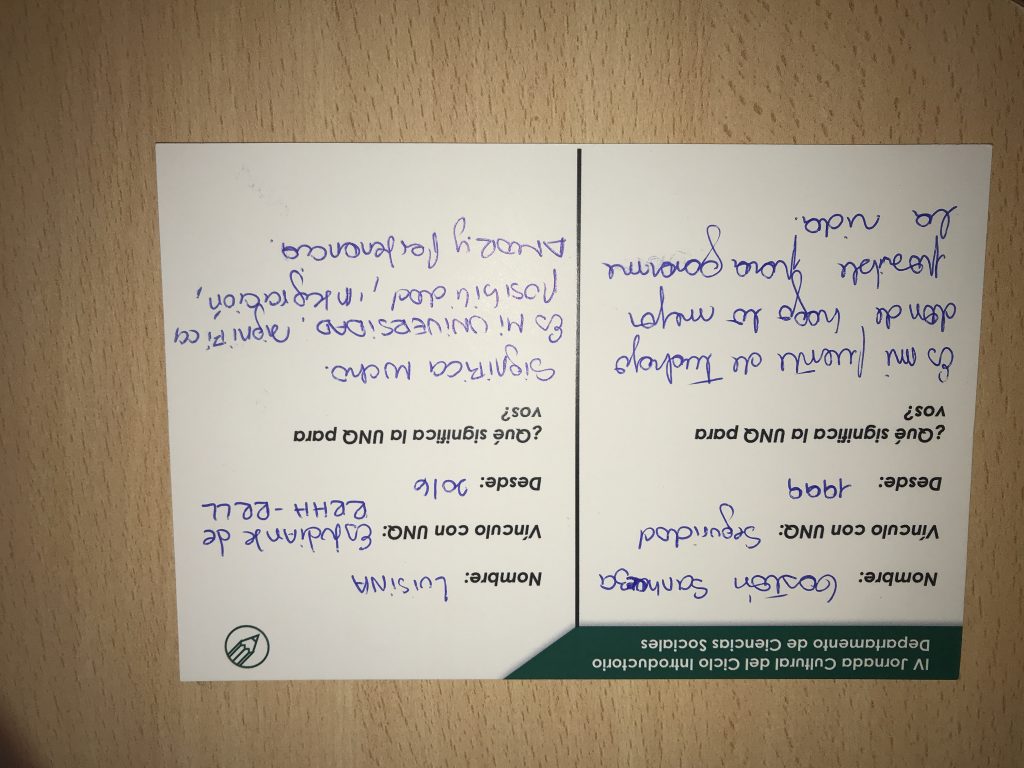 IV Jornada Cultural del Ciclo Introductorio
Departamento de Ciencias Sociales
Nombre: Gastón Sanhueza
Vínculo con UNQ: Seguridad
Desde: 1999
¿Qué significa la UNQ para
vos?
Es mi fuente de trabajo
donde hago lo mejor
posible para ganarme
la vida.
Nombre: LUISINA
Vínculo con UNQ: Estudiante de
RRHH - RRLL
Desde: 2016
¿Qué significa la UNQ para
vos?
Significa mucho.
Es mi UNIVERSIDAD. significa
posibilidad, integración,
AMOR y Pertenencia.